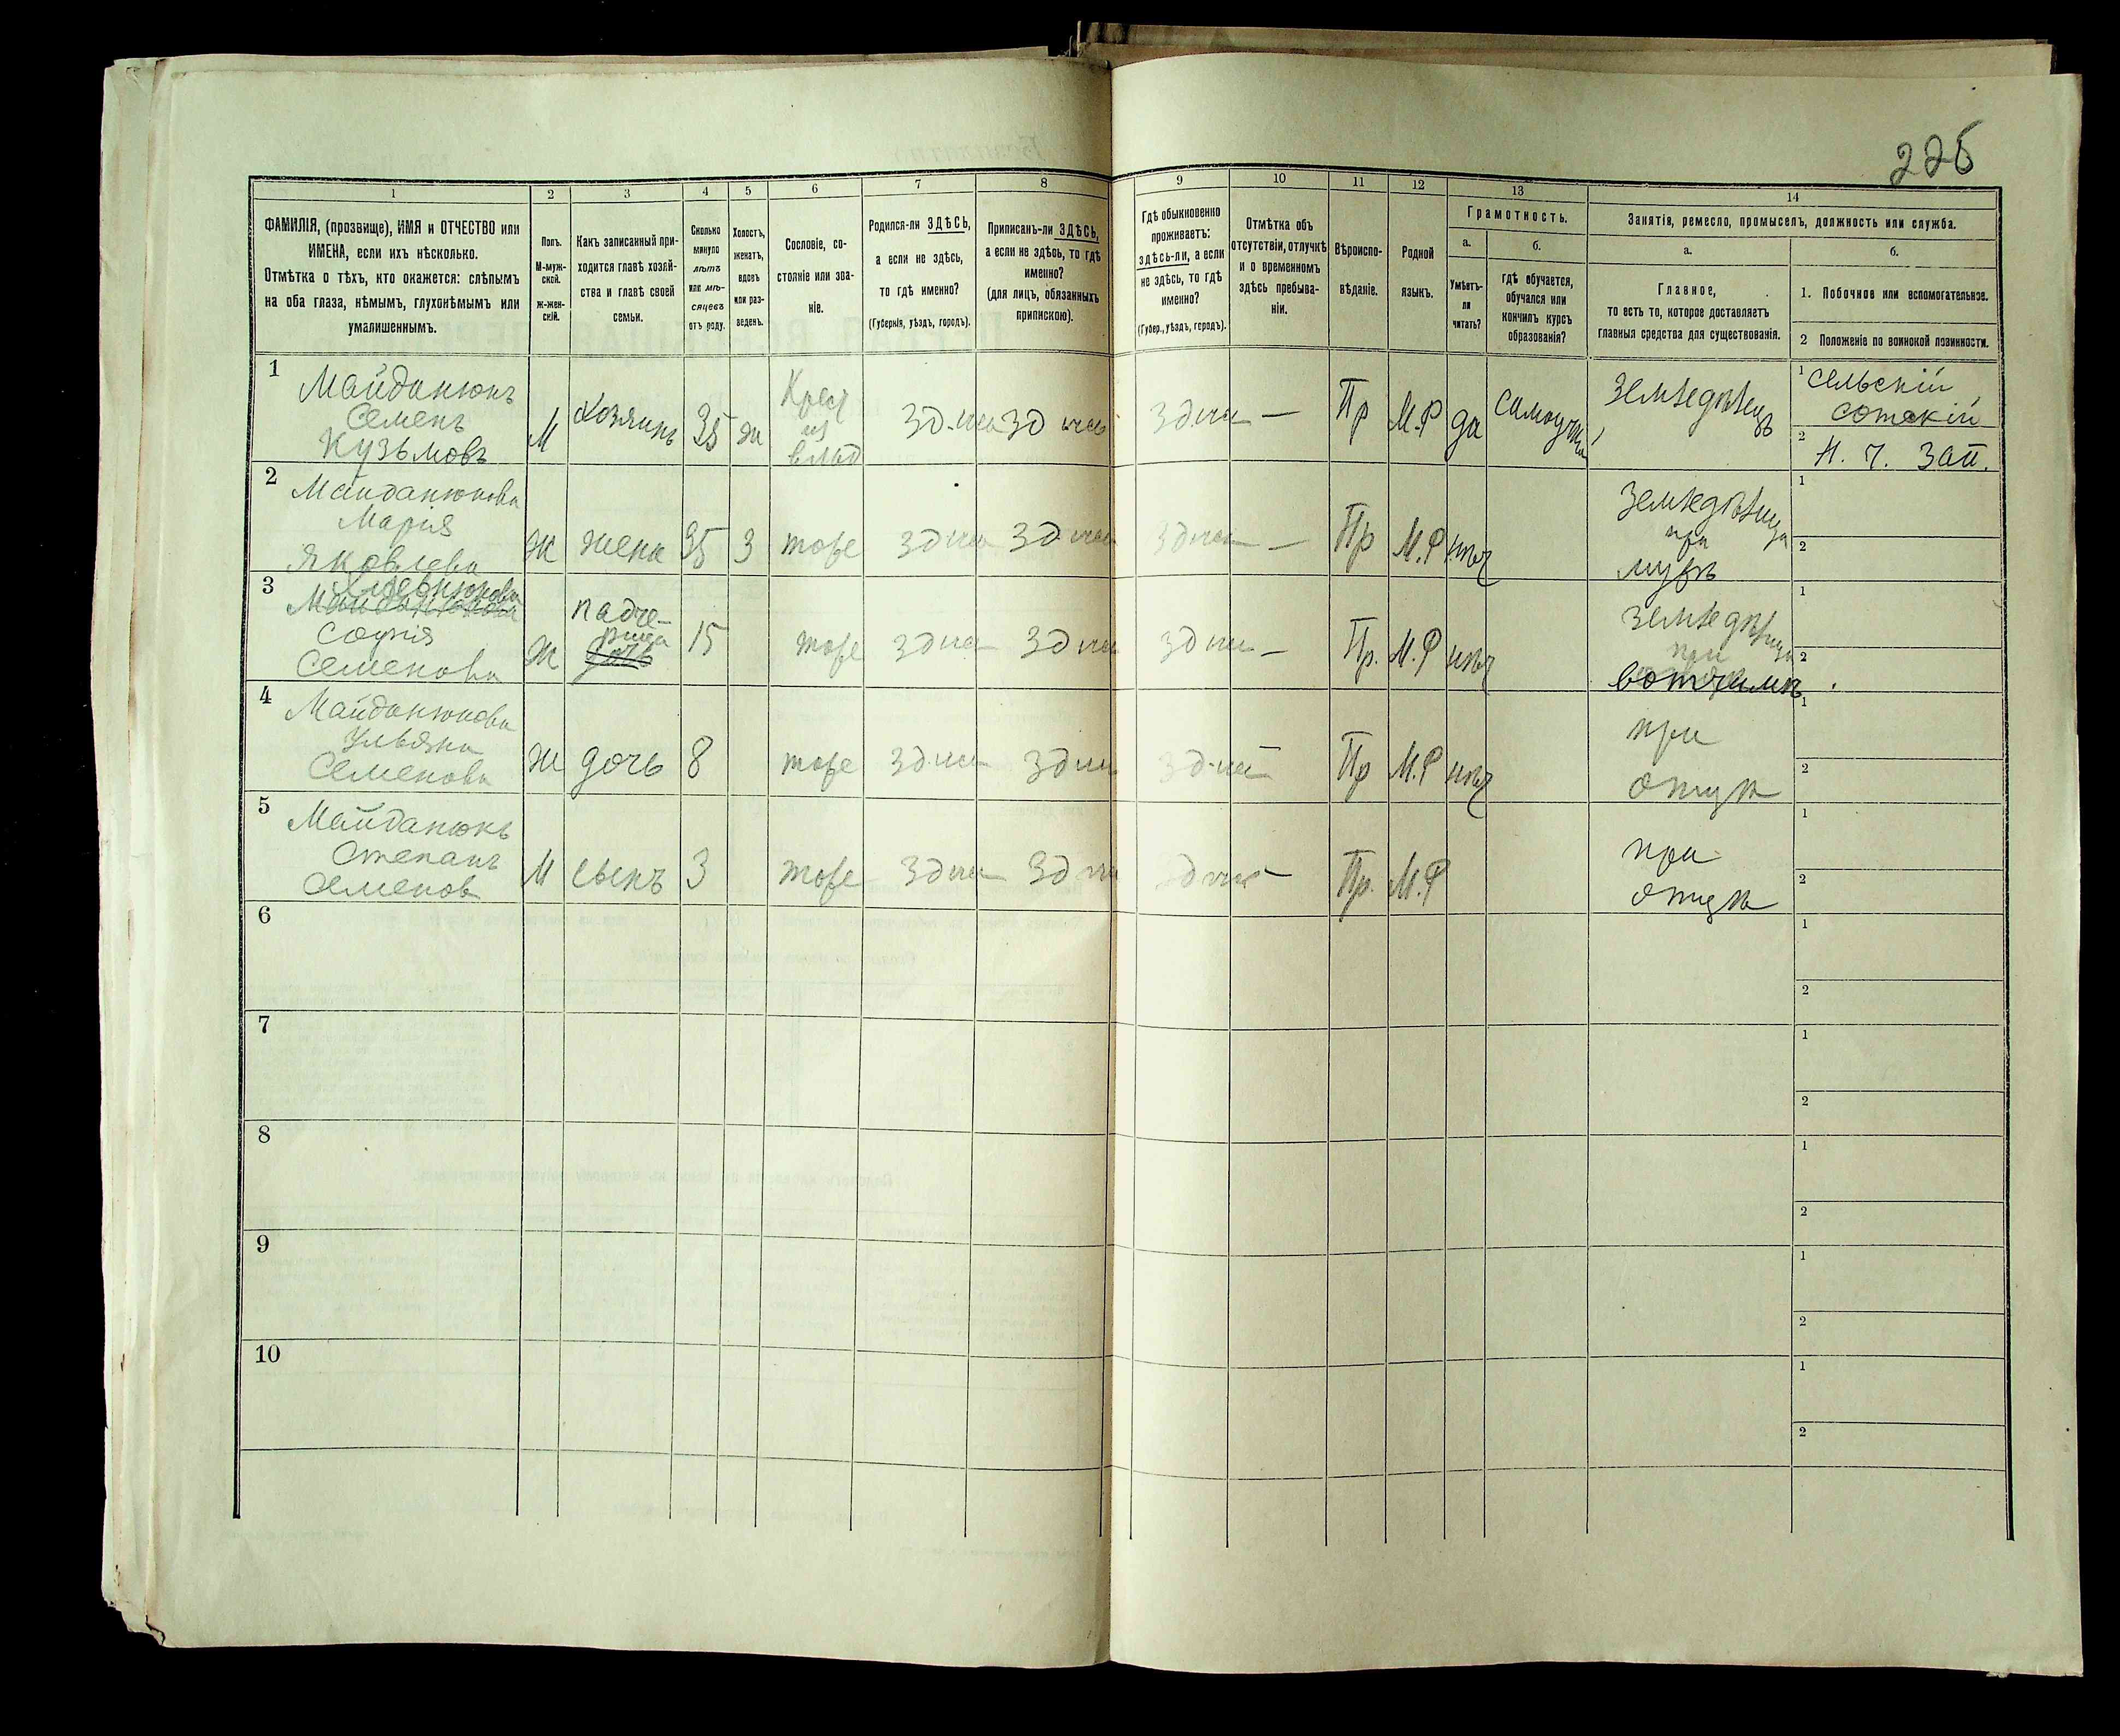 226
1 2 3 4 5 6 7 8 9 10 11 12 13 14
ФАМИЛІЯ, (прозвище), ИМЯ и ОТЧЕСТВО или
ИМЕНА, если ихъ нѣсколько.
Отмѣтка о тѣхъ, кто окажется: слѣпымъ
на оба глаза, нѣмымъ, глухонѣмымъ или
умалишеннымъ.
Полъ.
М-муж-
ской.
ж-жен-
скій.
Какъ записанный при-
ходится главѣ хозяй-
ства и главѣ своей
семьи.
Сколько
минуло
лѣтъ
или мѣ-
сяцевъ
отъ роду.
Холостъ,
женатъ,
вдовъ
или раз-
веденъ.
Сословіе, со-
стояніе или зва-
ніе.
Родился-ли ЗДѢСЬ,
а если не здѣсь,
то гдѣ именно?
(Губернія, уѣздъ, городъ).
Приписанъ-ли ЗДѢСЬ,
а если не здѣсь, то гдѣ
именно?
(для лицъ, обязанныхъ
припискою).
Гдѣ обыкновенно
проживаетъ:
здѣсь-ли, а если
не здѣсь, то гдѣ
именно?
(Губер., уѣздъ, городъ).
Отмѣтка объ
отсутствіи, отлучкѣ
и о временномъ
здѣсь пребыва-
ніи.
Вѣроиспо-
вѣданіе.
Родной
языкъ.
Грамотность.
а.
Умѣетъ-
ли
читать?
б.
гдѣ обучается,
обучался или
кончилъ курсъ
образованія?
Занятія, ремесло, промыселъ, должность или служба.
а.
Главное,
то есть то, которое доставляетъ
главныя средства для существованія.
б.
1. Побочное или вспомогательное.
2 Положеніе по воинской повинности.
1
Майданюкъ
Семенъ
Кузьмовъ
М
Хозяинъ
35
ж
Крест
из
влад
Пр
М.Р
да
Земледѣлецъ
1 сельскій
сотскій
2
Н. Ч. Зап.
2
Майданюкова
Марія
Яковлева
Ж
жена
35
З
тоже
Пр
М.Р
нѣт
Земледѣлица
при
мужѣ
1
2
3
Майданюкова
Софія
Семенова
Ж
падче-
рица
дочь
15
тоже
Пр.
М.Р
нѣт
Земледѣлица
при
вотчимѣ
1
2
4
Майданюкова
Ульяна
Семенова
Ж
дочь
8
тоже
Пр
М.Р
нѣт
при
отцѣ
1
2
5
Майданюкъ
Степанъ
Семенов
М
сынъ
3
тоже
Пр.
М.Р
при
отцѣ
1
2
6
1
2
7
1
2
8
1
2
9
1
2
10
1
2